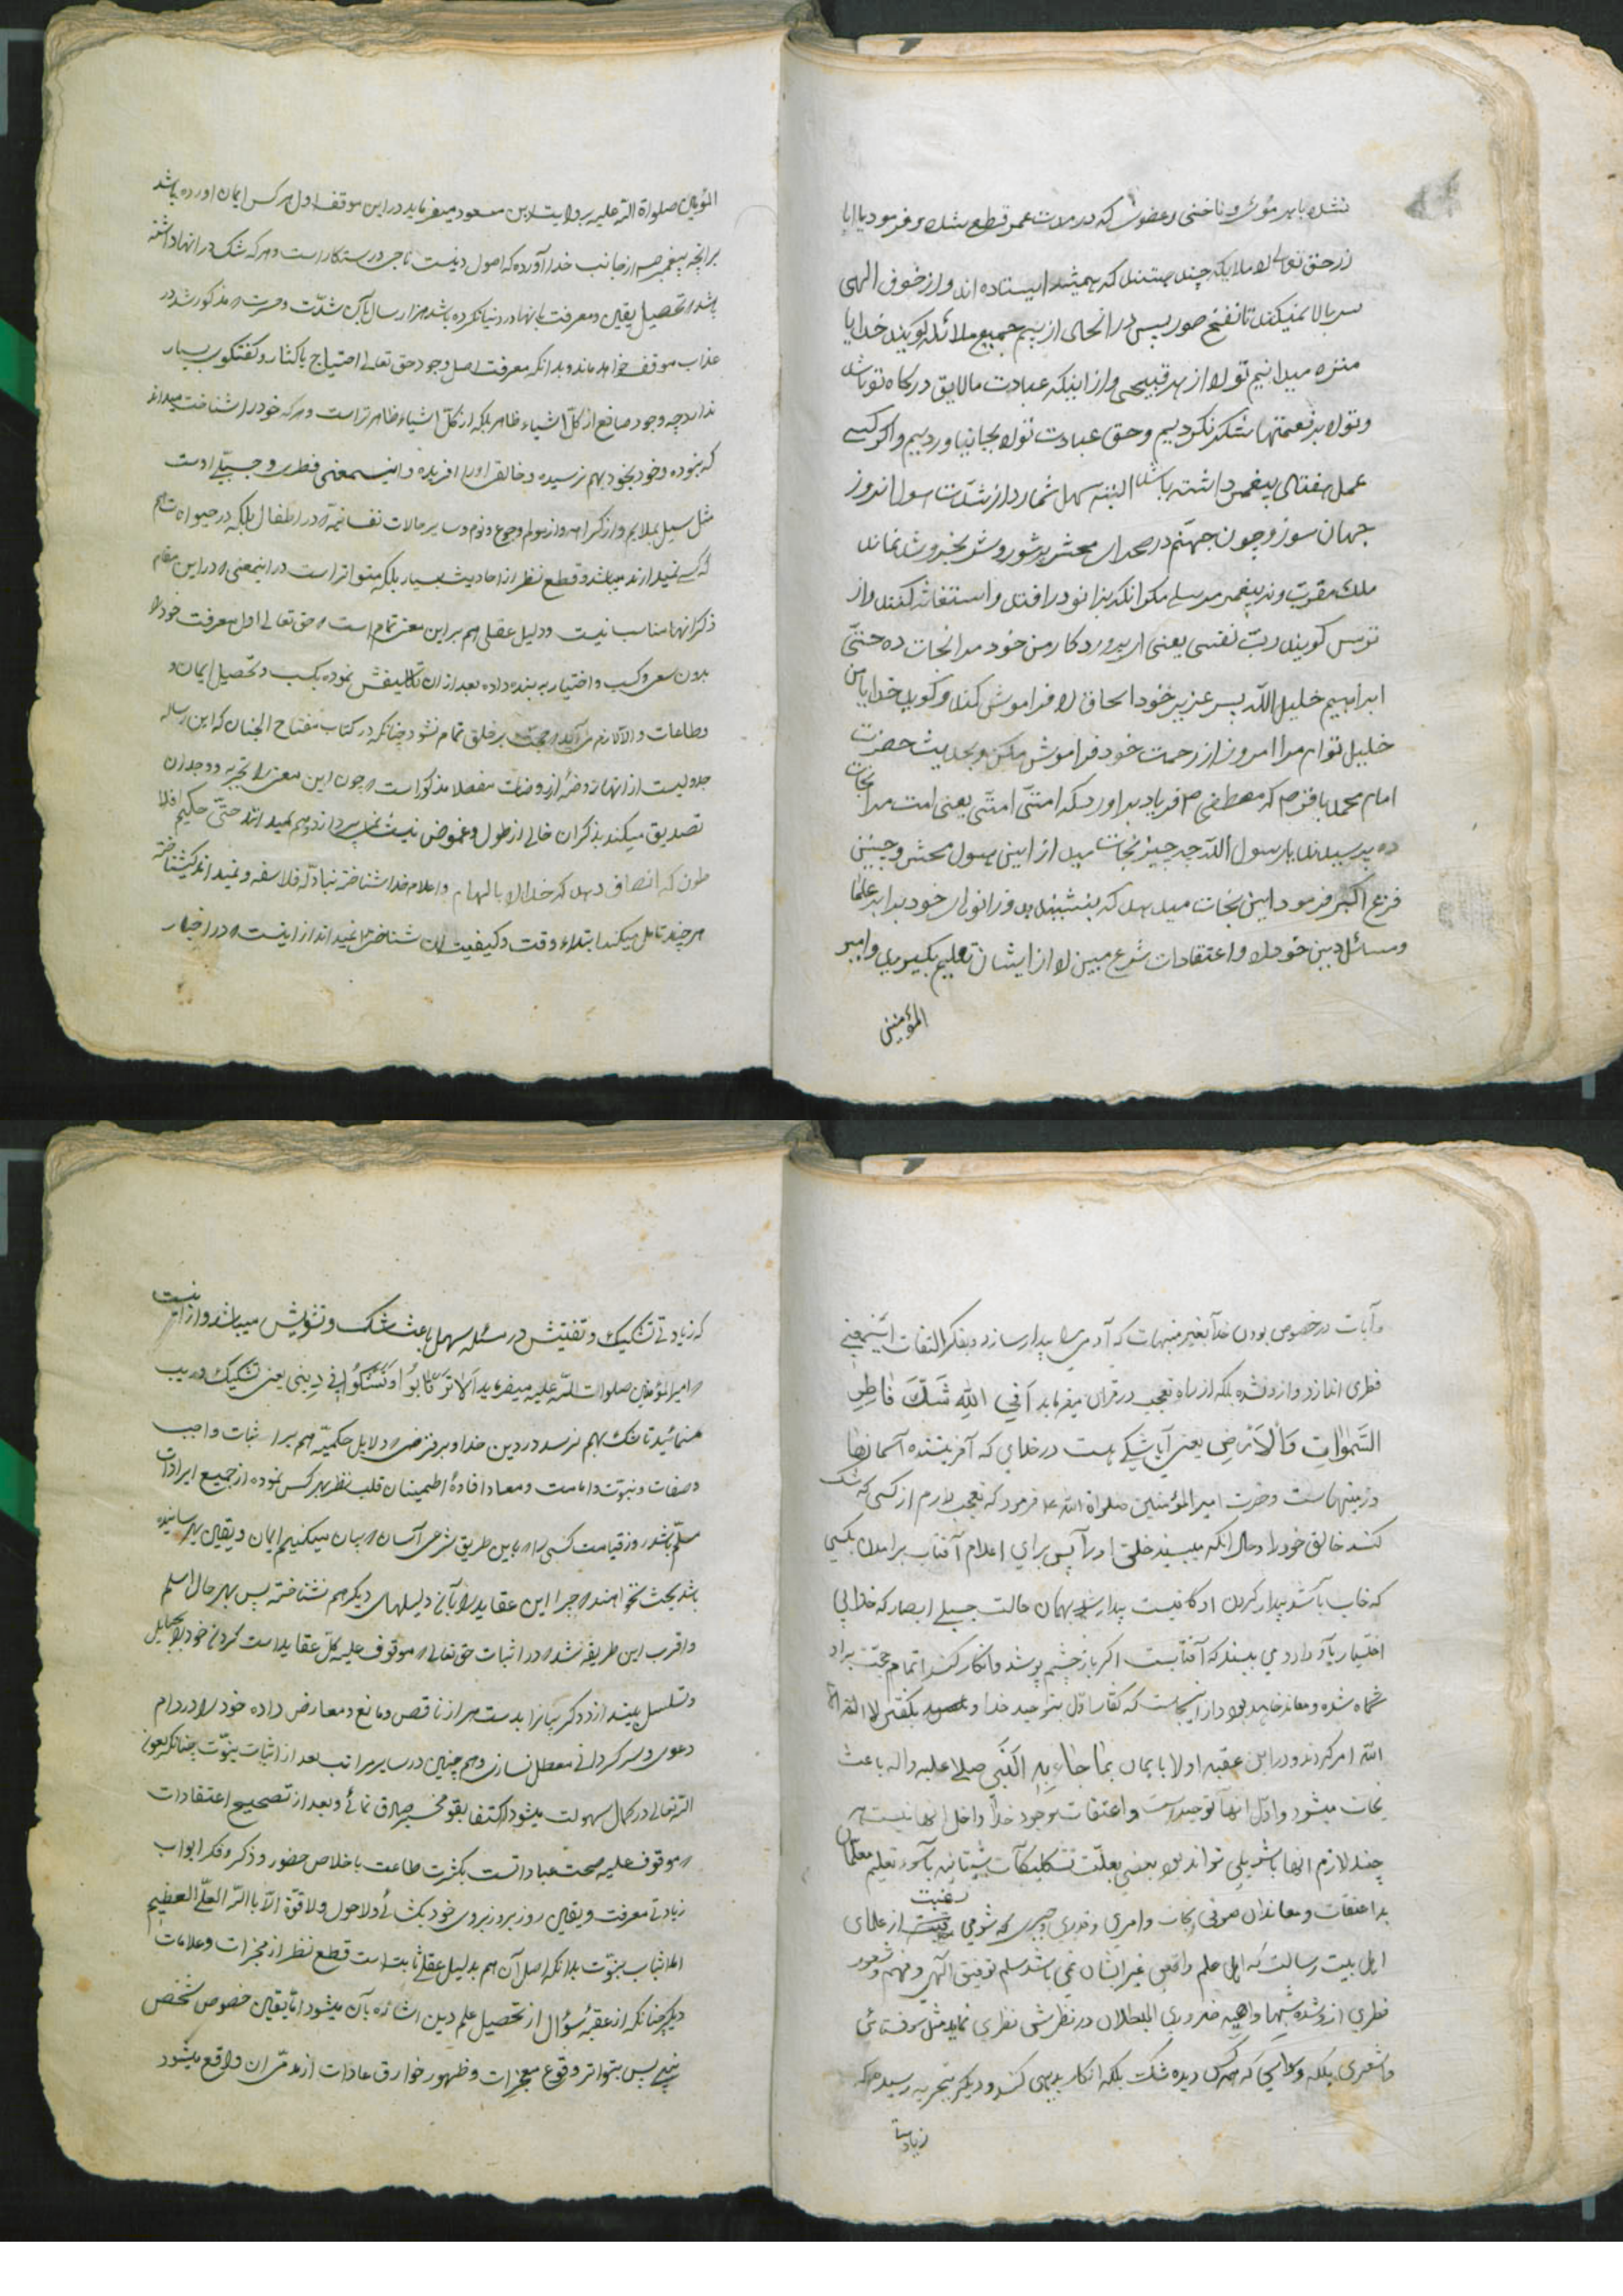 نشده باید مؤمن و ناخنی و عضوی که در مدت عمر قطع شده و فرمود یا ابا
ذر حق تعالی را ملایکه چند هستند که همیشه ایستاده اند و از خوف الهی
سر بالا نمیکنند تا نفخ صور پس در انحال از بیم جمیع ملائکه گویند خدایا
منزه میدانیم تو را از هر قبیحی و از اینکه عبادت ما لایق درگاه تو باشد
و تو را بر نعمتها شکر نکردیم و حق عبادت تو را بجا نیاوردیم و اگر کسی
عمل هفتاد پیغمبر داشته باشد البته سهل شمارد از شدّت هول انروز
جهان سوز و چون جهنّم در صحرای محشر پر شور و شر بخروشد نماند
ملك مقرب و نه پیغمبر مرسلی مگر انکه بزانو در افتد و استغاثه کنند و از
ترس گویند ربّ نفسی یعنی ای پروردگار من خود مرا نجات ده حتّی
ابراهیم خلیل اللّه پسر عزیز خود اسحاق را فراموش کند و گوید خدایا من
خلیل توام مرا امروز از رحمت خود فراموش مکن و بحدیث حضرت
امام محمد باقر ع م که مصطفی ص فریاد بر اورد که امتّی امتّی یعنی امت مرا نجات
ده پرسیدند یا رسول اللّه چه چیز نجات میدهد از این هول محشر و چنین
فزع اکبر فرمود این نجات میدهد که بنشیند بدو زانوی خود برابر علما
و مسائل دین خود را و اعتقادات شرع مبین را از ایشان تعلیم بگیرید و امیر
المؤمنین
المؤمنین صلواة اللّه علیه بروایت ابن مسعود میفرماید در این موقف اول هر کس ایمان اورده باشد
بر انچه پیغمبر ص از جانب خدا آورده که اصول دینست ناجی و رستگار است و هر که شک در انها داشته
باشد و تحصیل یقین و معرفت بانها در دنیا نکرده باشد هزار سال با آن شدّت و حسرت مذکور شد در
عذاب موقف خواهد ماند و بدانکه معرفت اصل وجود حق تعالی احتیاج باکثار و گفتگوی بسیار
ندارد چه وجود صانع از کلّ اشیاء ظاهر بلکه از کلّ اشیاء ظاهر تر است و هر که خود را شناخت میداند
که نبوده و خود بخود بهم نرسیده و خالقی او را افریده و اینمعنی فطری و جبلّی اوست
مثل میل بملایم و از کراهت و از هول و جوع و نوم و سایر حالات نفسانیّه در اطفال بلکه در حیوانات هم
که کسی نمیداند میباشد و قطع نظر از احادیث بسیار بلکه متواتر است در اینمعنی و در این مقام
ذکر انها مناسب نیست و دلیل عقلی هم بر این معنی تمام است حق تعالی اول معرفت خود را
بدون سعی و کسب و اختیار به بنده داده بعد از ان تکالیفش نموده بکسب و تحصیل ایمان و
و طاعات و الا لازم می آید حجت بر خلق تمام نشود چنانکه در کتاب مفتاح الجنان که این رساله
جدولیست از انهار و روضهٔ از روضات مفصلا مذکور است و چون این معنی را تجربه و وجدان
تصدیق میکند بذکر ان خالی از طول و غموض نیست نمی پردازد و هم نمیدانند حتّی حکیم افلا
طون که انصاف دهد که خدا را بالهام و اعلام خدا شناخته نه بادلّه فلاسفه و نمیداند کی شناخته
هر چند تامل میکند ابتداء وقت و کیفیت ان شناختن را نمیداند از اینست در اخبار
و آیات در خصوص بودن خدا بغیر منبهات که آدمی را بیدار سازد و بفکر التفات اینمعنی
فطری اندازد وارد نشده بلکه از راه تعجب در قرآن میفرماید اَفِی اللهِ شَكّ فَاطِرِ
السَّمٰوَاتِ وَالْاَرْضِ یعنی آیا شکی هست در خدایی که آفریننده آسمانها
و زمینهاست و حضرت امیر المؤمنین صلواة الله ع فرمود که تعجب دارم از کسی که شک
کند خالق خود را و حال انکه میبیند خلق او را پس برای اعلام آفتاب بر امدن بکسی
که خواب باشد بیدار کردن او کافیست بیدار شد بهمان حالت جبلی ابصار که خدا بی
اختیار باو داده می بیند که آفتابست اگر باز چشم پوشد و انکار کند اتمام حجّت بر او
شده و معاند خواهد بود و از اینجاست که کفار را اول بتوحید خدا و بگفتن لا اله الا
الله امر کردند و در این عقبه اولا بایمان بِما جَاءَ بِهِ النَّبی صلی علیه و اله باعث
نجات میشود و اوّل انها توحید است و اعتقات بوجود خدا داخل انها نیست هر
چند لازم انها باشد بلی تواند بود بعضی بعلّت تشکیکات شیطانیه یا سوء تعلیم معلمان
بد اعتقات و معاندان صوفی و دهری و جبری که شومی رغبت از علمای
اهل بیت رسالت که اهل علم واقعی غیر ایشان نمی باشد سلب توفیق الهی و فهم و شعور
فطری از و شده شبهات واهیه ضروری البطلان در نظرش نظری نماید مثل سوفسطائی
و اشعری بلکه دیده شک بلکه انکار بدیهی کند و دیگر بتجربه رسیده که
زیادتی
که زیادتی تشکیک و تفتیش در مسئله سهل باعث شک و تشویش میباشد و از اینست
امیر المؤمنین صلوات اللّه علیه میفرماید اَلا لا تَرْتابُوا وَتَشُکُّوا فی دِینی یعنی تشکیک و ریب
منمائید تا شک بهم نرسد در دین خدا و بر فرضی دلایل حکمیّه هم برای اثبات واجب
و صفات و نبوّت و امامت و معاد افادهٔ اطمینان قلب نظر بهر کس نموده از جمیع ایرادات
سلّم باشد روز قیامت کسی را باین طریق شرعی آسان بیان میکنیم ایمان و یقین بهم رسانیده
باشد بحث نخواهند چرا این عقاید را بآن دلیلهای دیگر هم نشناختهٔ پس بهر حال اسلم
و اقرب این طریقه شد در اثبات حق تعالی موقوف علیه کلّ عقاید است گردن خود را بحبایل
و تسلسل بنیندازد و گریبانرا بدست هر از ناقض و مانع و معارض داده خود را در دام
دعوی و سرگردانی معطل نسازی و هم چنین در سایر مراتب بعد از اثبات نبوّت چنانکه بعون
اللّه تعالی در کمال سهولت میشود اکتفا بقول مخبر صادق نمائی و بعد از تصحیح اعتقادات
موقوف علیه صحت عباداتست بکثرت طاعت باخلاص حضور و ذکر و فکر ابواب
زیادتی معرفت و یقین روز بروز بروی خود بگشائی و لا حول و لا قوّة الّا باللّه العلّی العظیم
اما اثبات نبوّت بدانکه اصل آن هم بدلیل عقلی ثابت است قطع نظر از معجزات و علامات
دیگر چنانکه از عقبهٔ سُؤال از تحصیل علم دین اشاره بآن میشود امّا یقین خصوص شخص
نبی پس بتواتر وقوع معجزات و ظهور خوارق عادات از مدعّی ان واقع میشود